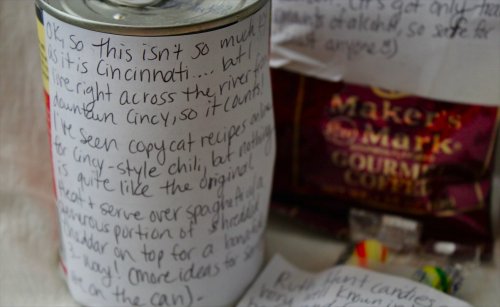 OK, so this isn't so much
as it is Cincinnati.... but I
live right across the river from
downtown Cincy, so it counts!
I've seen copycat recipes online
for Cincy-style chili, but nothing
is quite like the original.
Heat & serve over spaghetti
generous portion of shredded
cheddar on top for a
3-way! (more ideas for
on the can).
of alcohol, so safe for
anyone :)
Maker's
Mark
GOURMET
COFFEE
Ruth Hunt candies